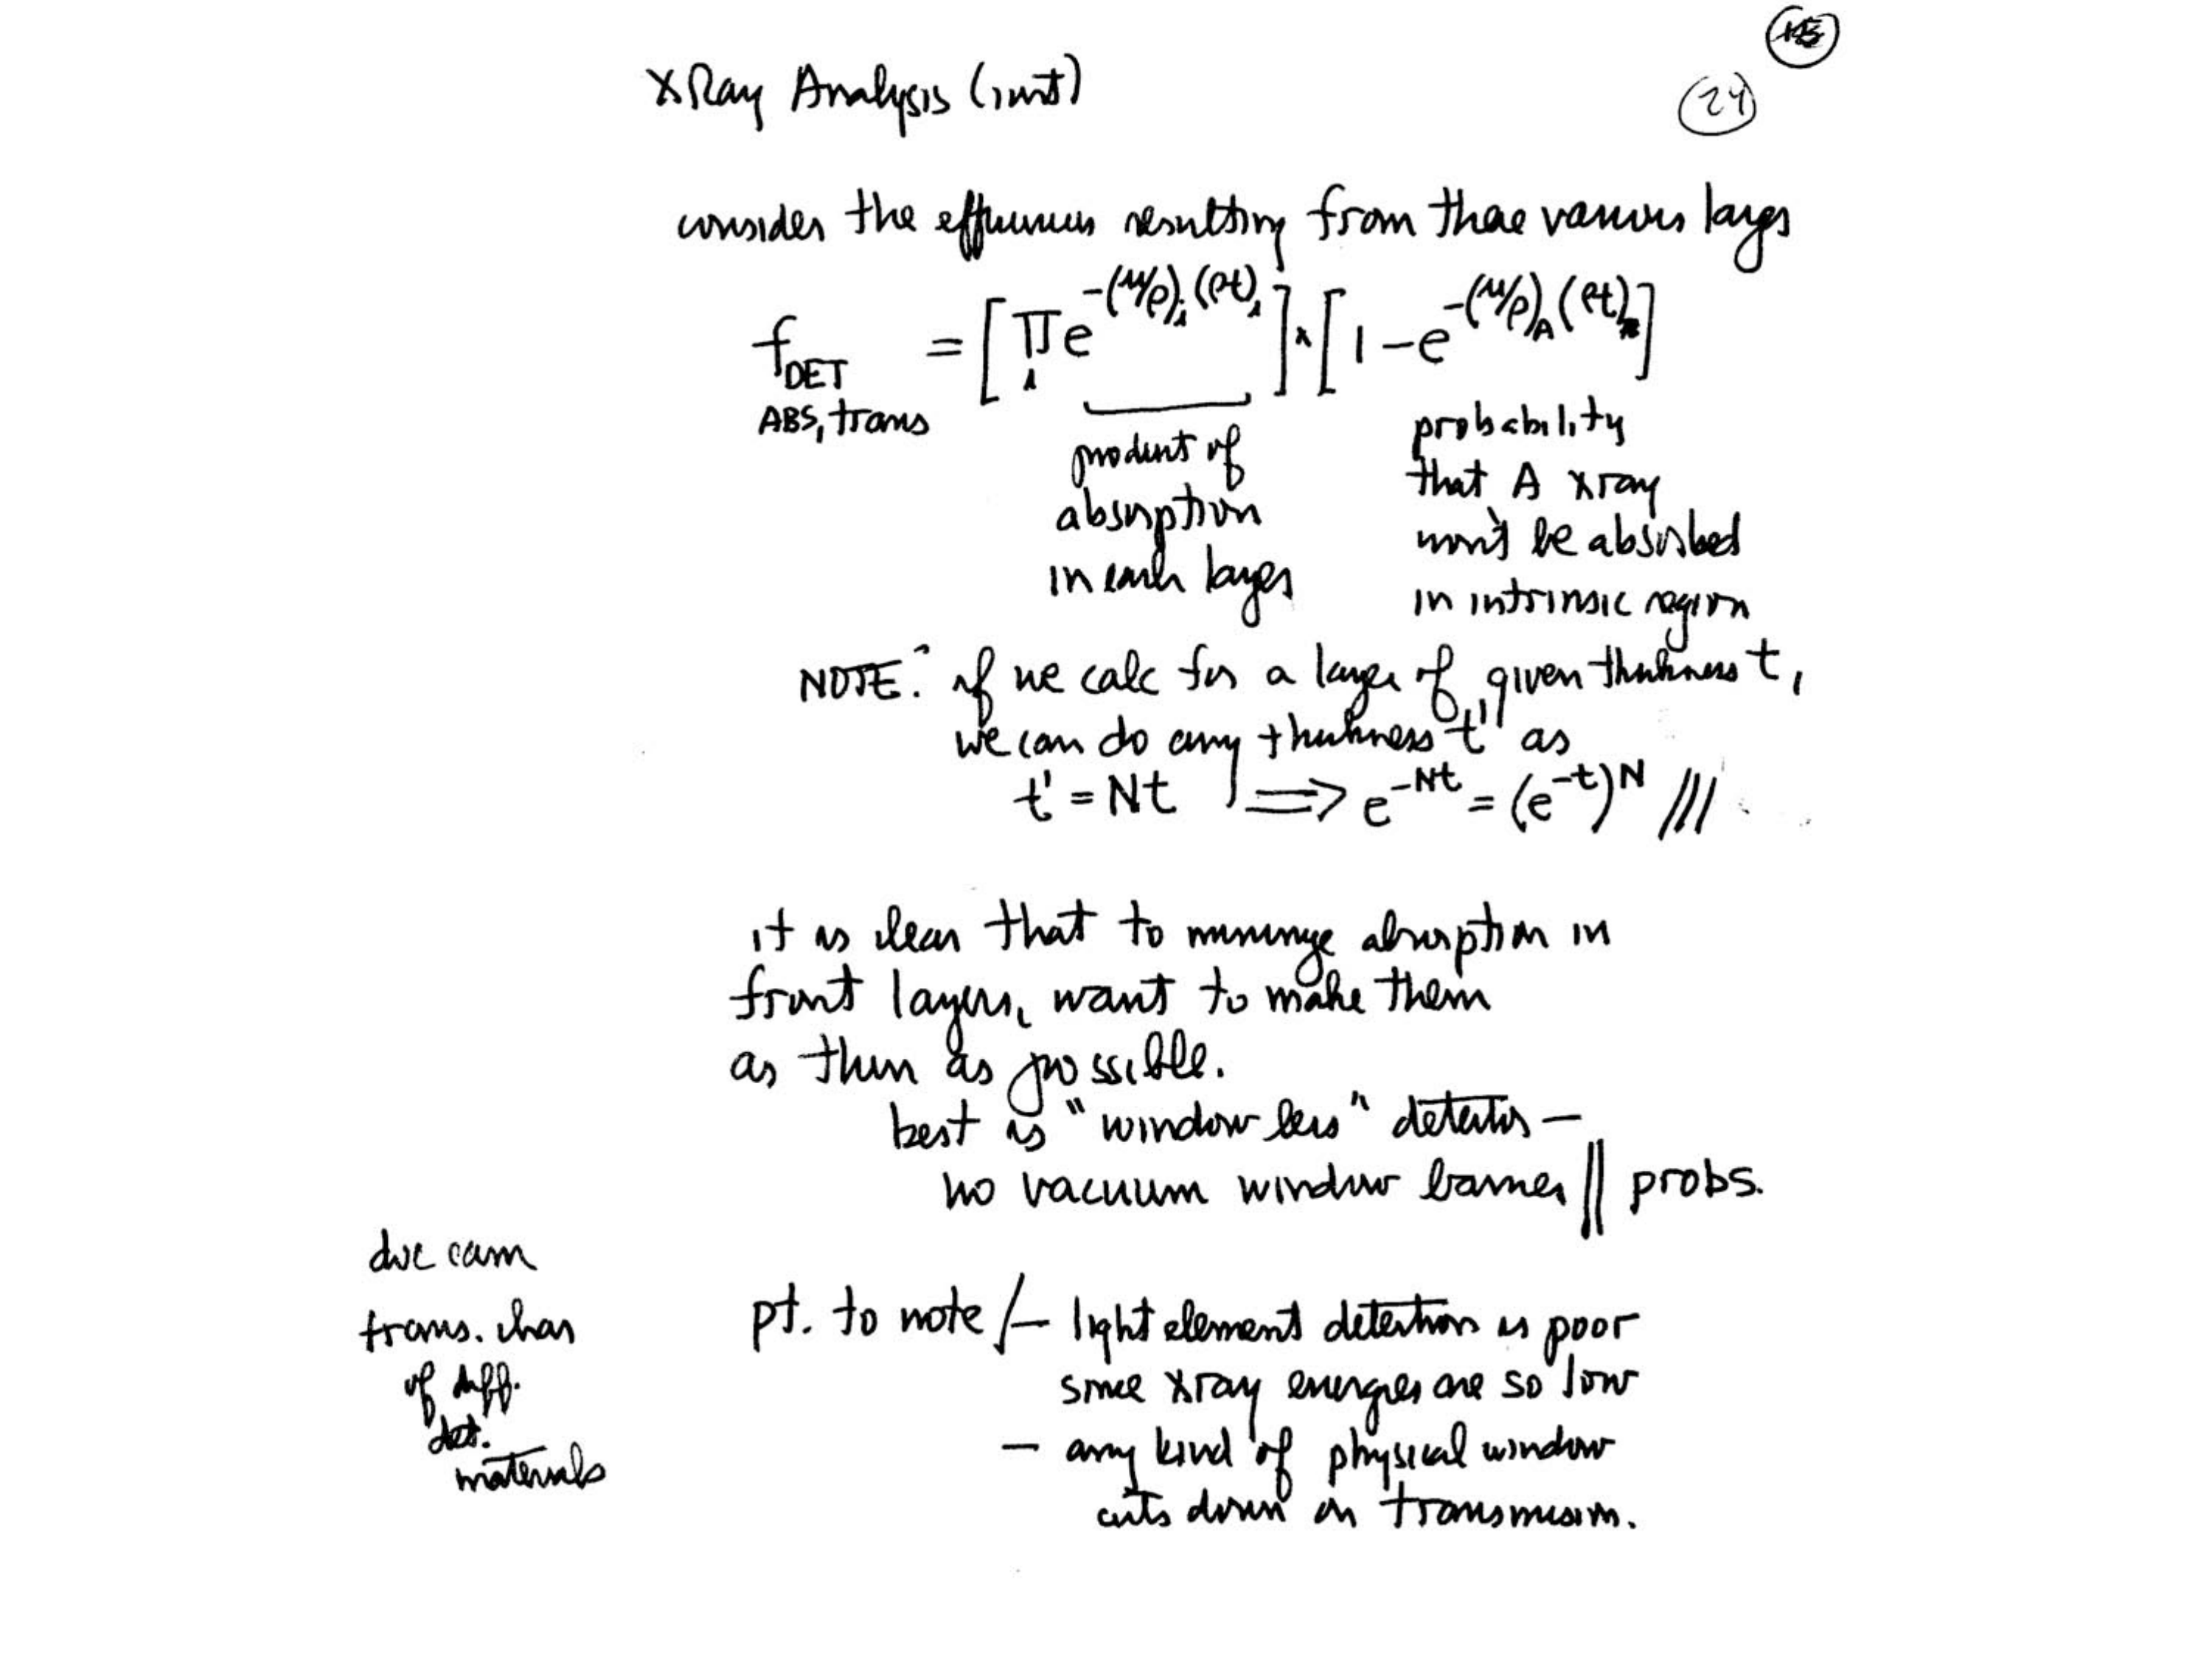 XRay Analysis (cont)
24
consider the efficiencies resulting from these various layers
f_DET ABS, trans = [∏_i e^{-(μ/ρ)_i (ρt)_i}] × [1 - e^{-(μ/ρ)_A (ρt)}]
product of
absorption
in each layer
probability
that A xray
won't be absorbed
in intrinsic region
NOTE: if we calc for a layer of given thickness t,
we can do any thickness t' as
t' = Nt ⟹ e^{-Nt} = (e^{-t})^N ///
it is clear that to minimize absorption in
front layers, want to make them
as thin as possible.
best is "windowless" detector —
no vacuum window barrier || probs.
doc cam
trans. char
of diff.
det.
materials
pt. to note /— light element detection is poor
since xray energies are so low
— any kind of physical window
cuts down on transmission.